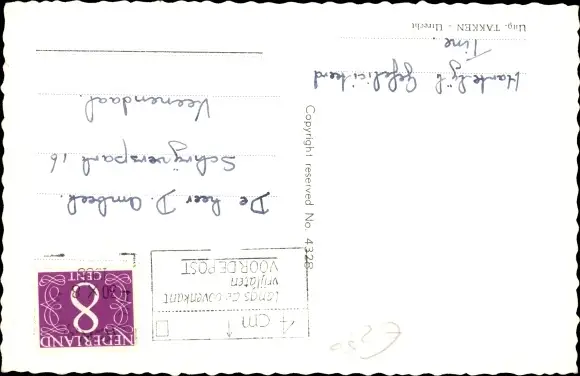 Uitg. TAKKEN - Utrecht
Hartelijk Gefeliciteerd
Tine.
Copyright reserved No. 4328
4 cm
langs de bovenkant
vrijlaten
VOOR DE POST
NEDERLAND
8
CENT
De heer D. Ambeek.
Schrijverspark 16
Veenendaal.